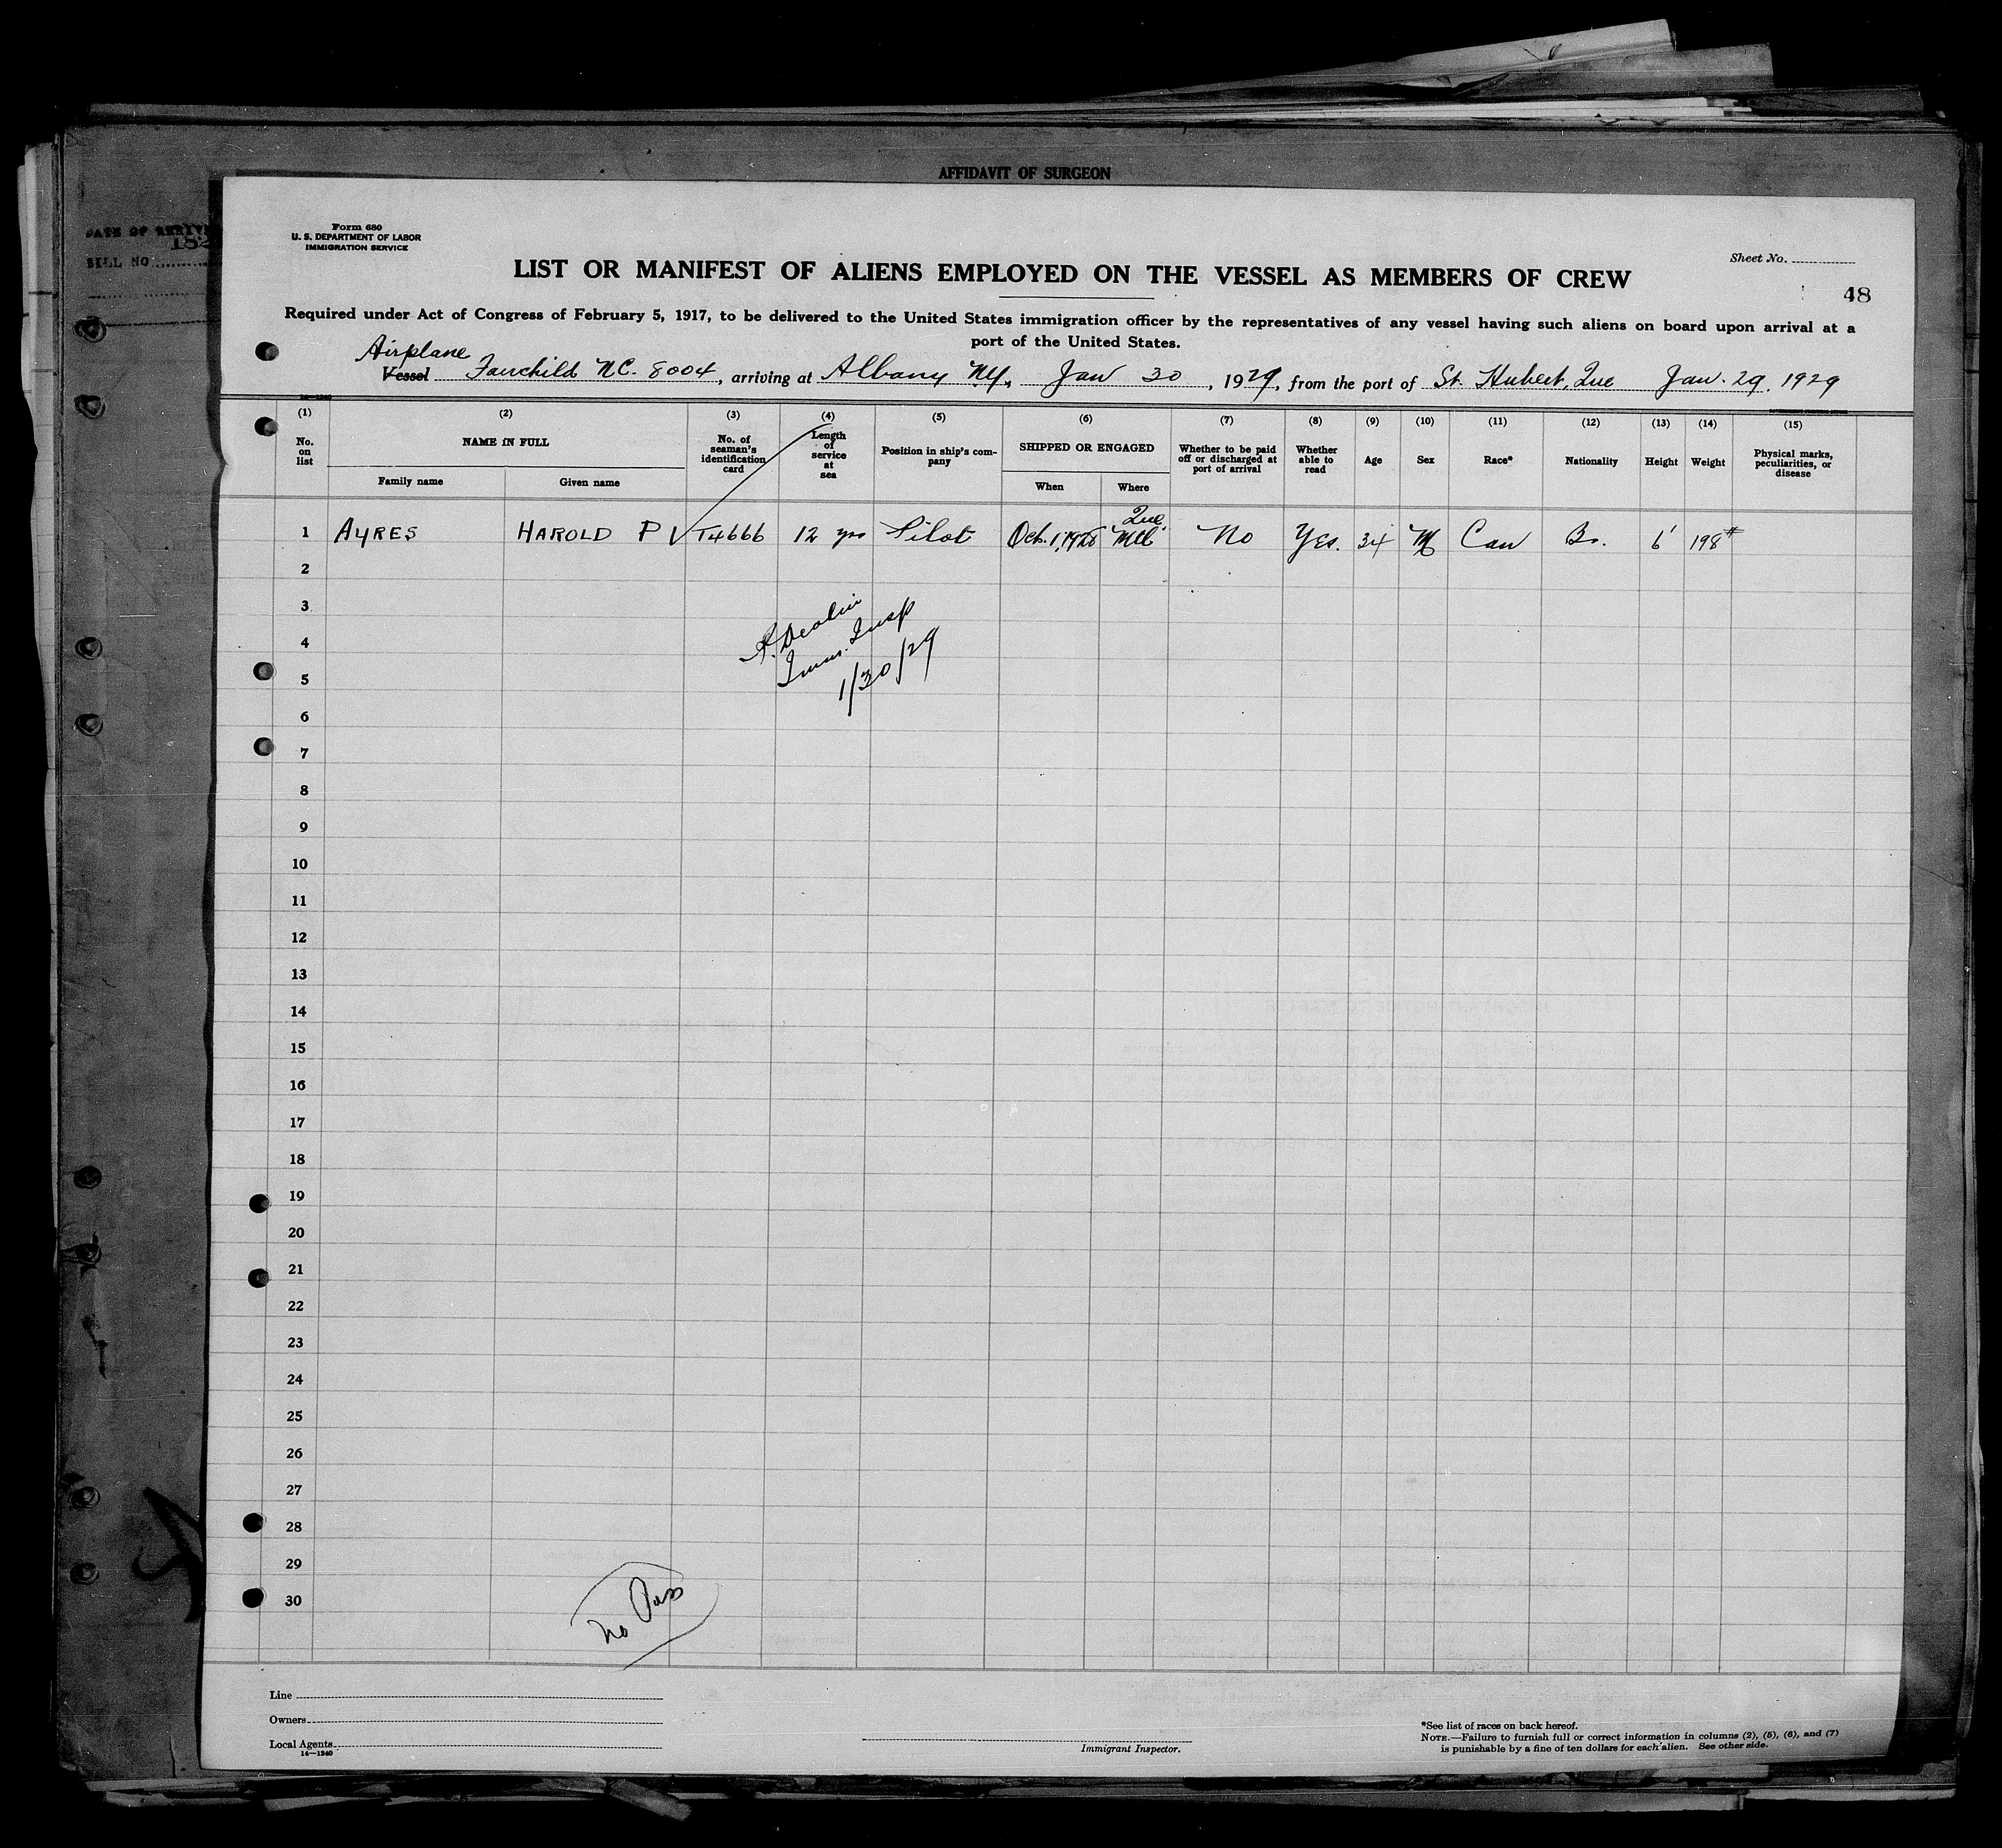 AFFIDAVIT OF SURGEON
BILL NO
Form 680
U. S. DEPARTMENT OF LABOR
IMMIGRATION SERVICE
Sheet No.
LIST OR MANIFEST OF ALIENS EMPLOYED ON THE VESSEL AS MEMBERS OF CREW
48
Required under Act of Congress of February 5, 1917, to be delivered to the United States immigration officer by the representatives of any vessel having such aliens on board upon arrival at a
port of the United States.
Airplane
Vessel Fairchild NC. 8004, arriving at Albany NY, Jan 30, 1929, from the port of St. Hubert, Que Jan. 29, 1929
(1) (2) (3) (4) (5) (6) (7) (8) (9) (10) (11) (12) (13) (14) (15)
No. on list
NAME IN FULL
Family name
Given name
No. of seaman's identification card
Length of service at sea
Position in ship's company
SHIPPED OR ENGAGED
When
Where
Whether to be paid off or discharged at port of arrival
Whether able to read
Age
Sex
Race*
Nationality
Height
Weight
Physical marks, peculiarities, or disease
1 AYRES HAROLD P T4666 12 yrs Pilot Oct. 1, 1928 Que. Mtl No Yes. 34 M Can Br. 6' 198#
2
3
4
5
Imm. Insp
1/30/29
6
7
8
9
10
11
12
13
14
15
16
17
18
19
20
21
22
23
24
25
26
27
28
29
30
No Pass
Line
Owners
Local Agents
14—1240
Immigrant Inspector.
*See list of races on back hereof.
NOTE.—Failure to furnish full or correct information in columns (2), (5), (6), and (7)
is punishable by a fine of ten dollars for each alien. See other side.